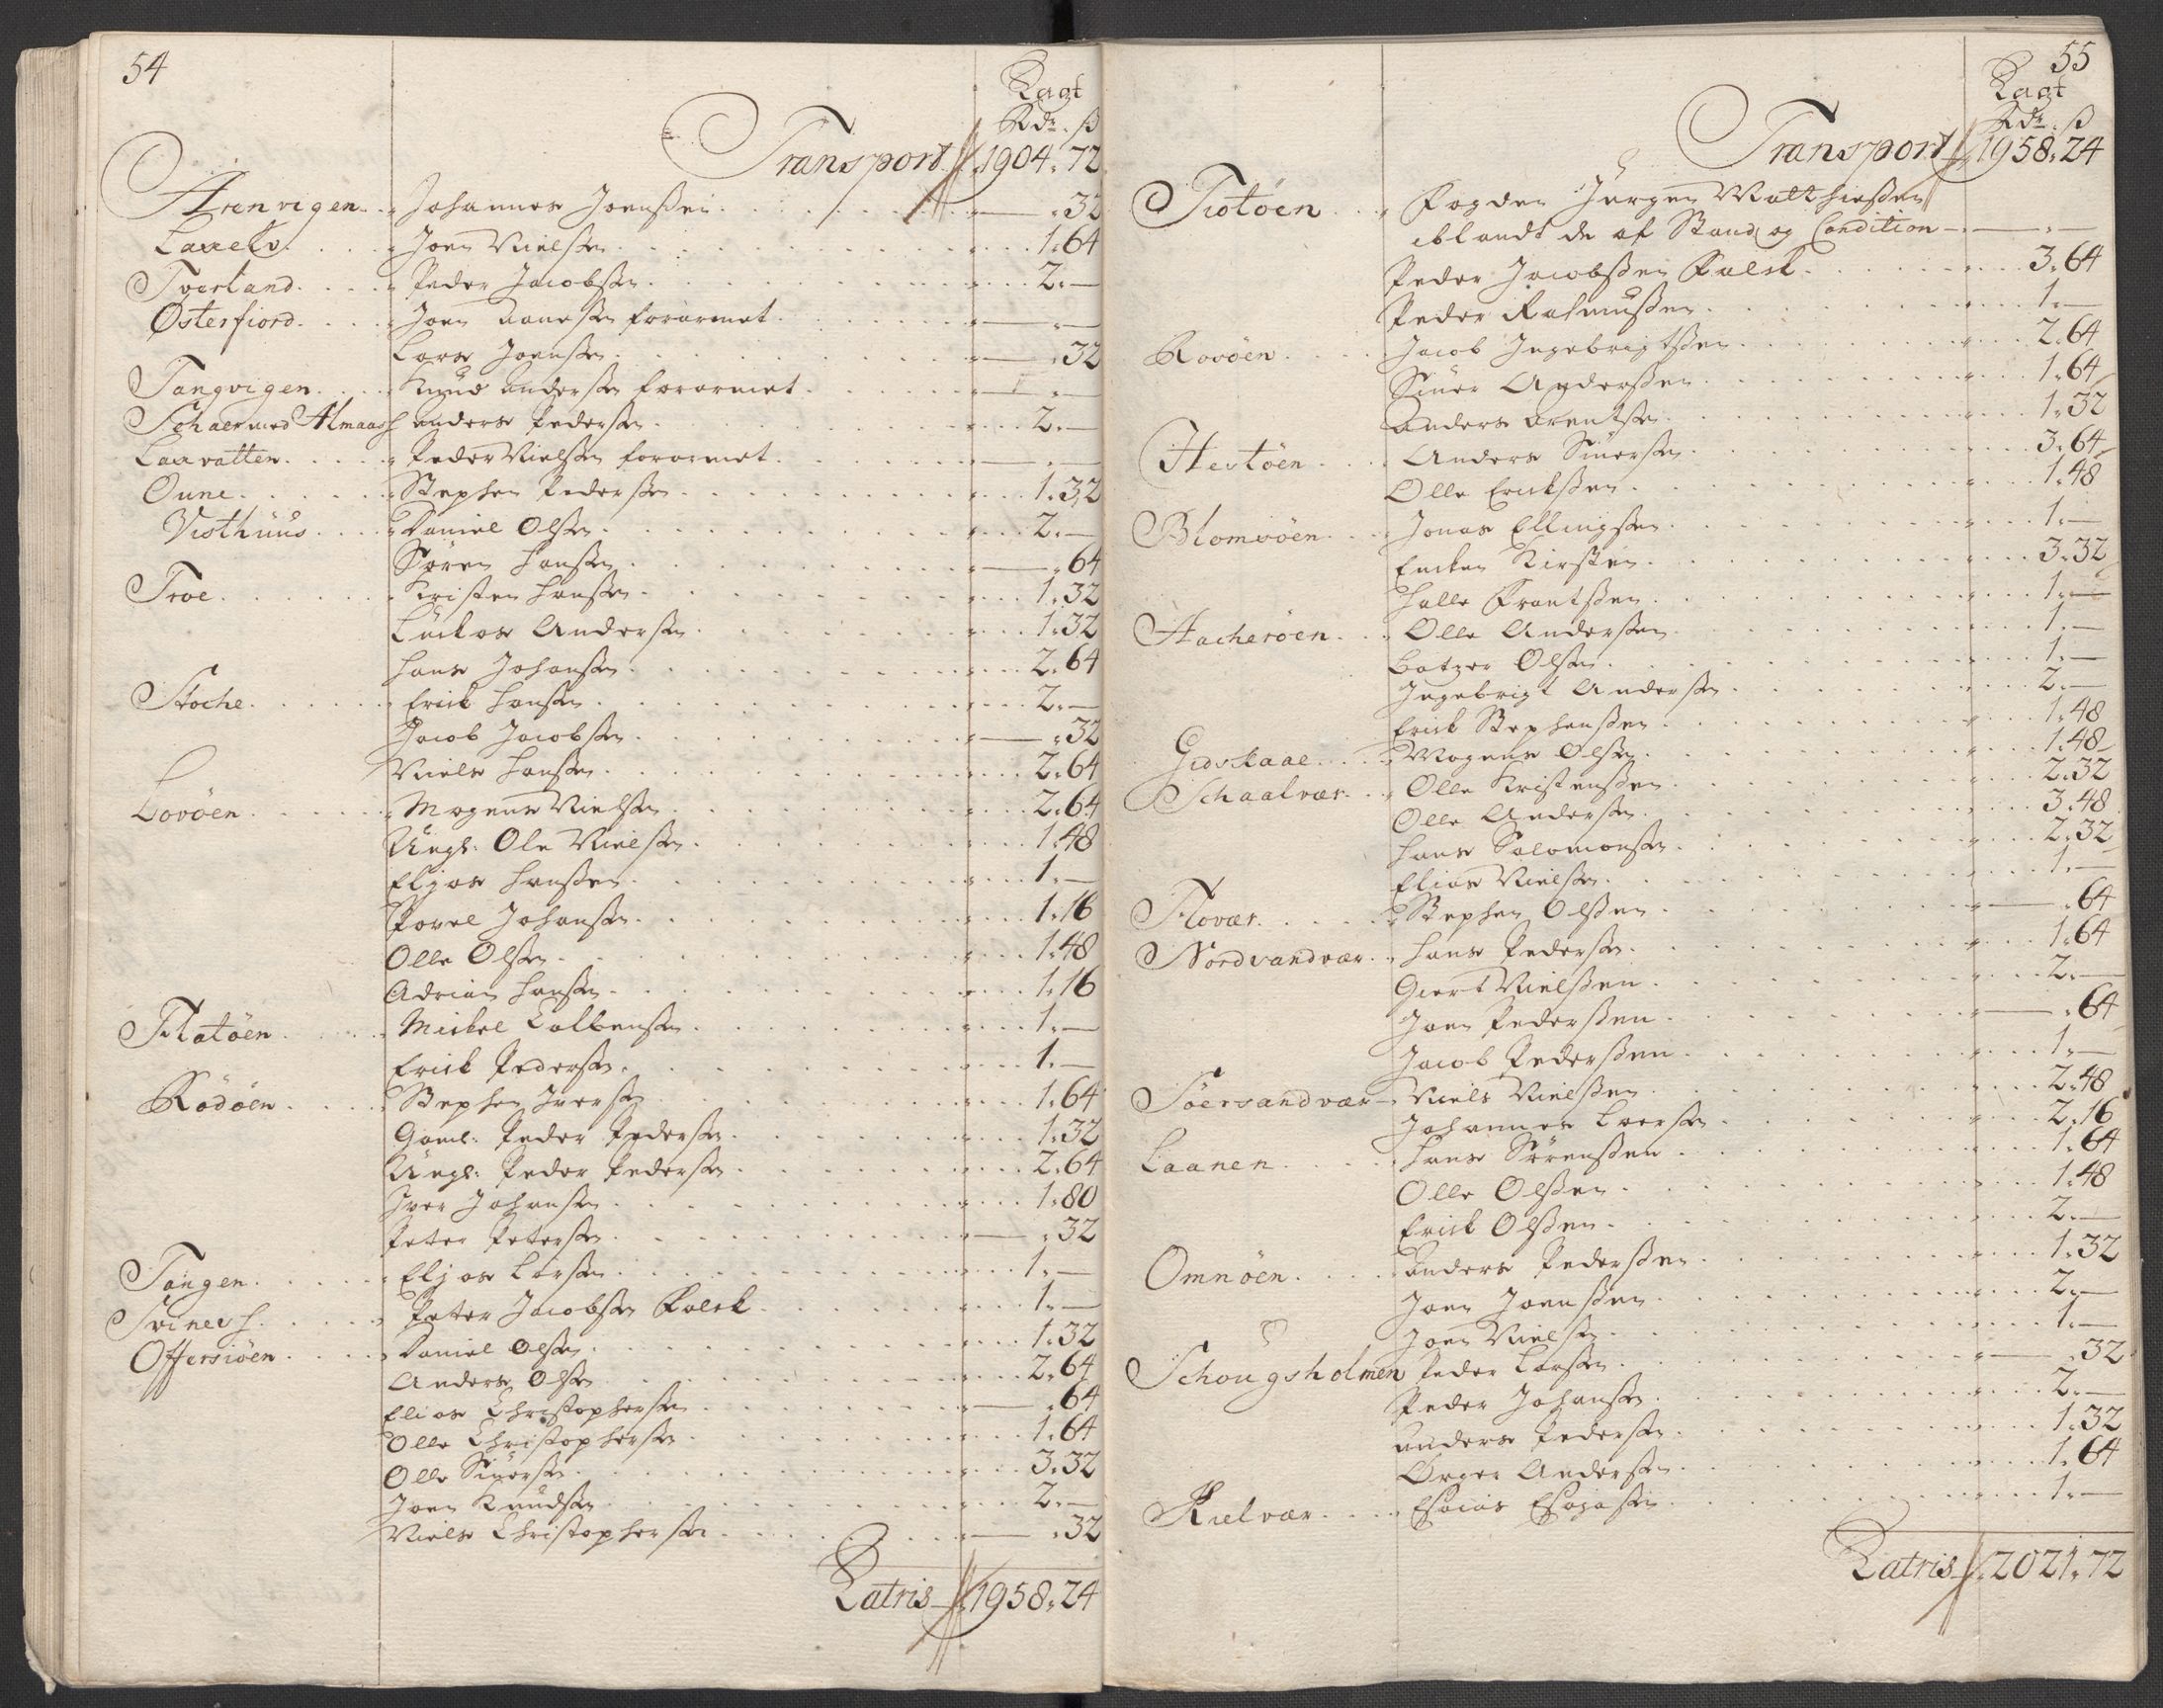 54
Laat
Rdr. ß
Transport 1904. 72
Arenvigen. . Johannes Joenßen . . . 32
Laxelv. . . Joen Nielsen . . . 1. 64
Tverland. . . Peder Jacobsen . . . 2. —
Østerfiord. . . Joen Aanesen forarmet . . . — . —
Lars Joensen . . . — . 32
Tangvigen. . . Knud Andersen forarmet . . . — . —
Schaermed Almaas Anders Pedersen . . . 2. —
Laxvatten. . . Peder Nielsen forarmet . . . — . —
Oune. . . Stephen Pedersen . . . 1. 32
Visthuus. . . Daniel Olsen . . . 2. —
Søren Hansen . . . — . 64
Troe. . . Kristen Hansen . . . 1. 32
Luckas Andersen . . . 1. 32
Hans Johansen . . . 2. 64
Stoche. . . Erick Hansen . . . 2. —
Jacob Jacobsen . . . — . 32
Niels Hansen . . . 2. 64
Lovöen. . . Mogens Nielsen . . . 2. 64
Ungl: Ole Nielsen . . . 1. 48
Eljas Hanßen . . . 1. —
Povel Johansen . . . 1. 16
Olle Olsen . . . 1. 48
Adrian Hansen . . . 1. 16
Flatöen. . . Mickel Colbensen . . . 1. —
Erick Pedersen . . . 1. —
Rödöen. . . Stephen Iversen . . . 1. 64
Gaml: Peder Pedersen . . . 1. 32
Ungl: Peder Pedersen . . . 2. 64
Iver Johansen . . . 1. 80
Peter Petersen . . . — . 32
Tangen. . . Eljas Larsen . . . 1. —
Svines . . . Peter Jacobsen Falck . . . 1. —
Offersiöen. . . Daniel Olsen . . . 1. 32
Anders Olsen . . . 2. 64
Elias Christophersen . . . — . 64
Olle Christophersen . . . 1. 64
Olle Siuersen . . . 3. 32
Joen Knudsen . . . 2. —
Niels Christophersen . . . — . 32
Latris 1958. 24
55
Laat
Rdr. ß
Transport 1958. 24
Tiotöen . . . Fogden Jürgen Matthießen
iblandt de af Stand og Condition — . —
Peder Jacobßen Falck . . . 3. 64
Peder Rasmußen . . . 1. —
Rovöen . . . Jacob Ingebrigtßen . . . 2. 64
Siuer Anderßen . . . 1. 64
Anders Arentsen . . . 1. 32
Hestöen . . . Anders Siuersen . . . 3. 64
Olle Erickßen . . . 1. 48
Blomsöen . . . Jonas Ellingsen . . . 1. —
Encken Kirsten . . . 3. 32
Halle Frantßen . . . 1. —
Hacheröen . . . Olle Anderßen . . . 1. —
Batzer Olsen . . . 1. —
Ingebrigt Andersen . . . 2. —
Erick Stephenßen . . . 1. 48
Gedskaae . . . Mogens Olsen . . . 1. 48
Schaalvær . . . Olle Kristenßen . . . 2. 32
Olle Andersen . . . 3. 48
Hans Salomonsen . . . 2. 32
Elias Nielsen . . . 1. —
Flovær . . . Stephen Olßen . . . — . 64
Nordvandvær . . . Hans Pedersen . . . 1. 64
Giert Nielßen . . . 2. —
Joen Pederßen . . . — . 64
Jacob Pederßen . . . 1. —
Söersandvær Niels Nielßen . . . 2. 48
Johannes Larsen . . . 2. 16
Laanen . . . Hans Sørenßen . . . 1. 64
Olle Olßen . . . 1. 48
Erick Olßen . . . 2. —
Omnöen . . . Anders Pederßen . . . 1. 32
Joen Joenßen . . . 2. —
Joen Nielsen . . . 1. —
Schougsholmen Peder Larsen . . . — . 32
Peder Johansen . . . 2. —
Anders Pedersen . . . 1. 32
Andersen . . . 1. 64
Kielvær . . . Esaias Esajasen . . . 1. —
Latris 2021. 72